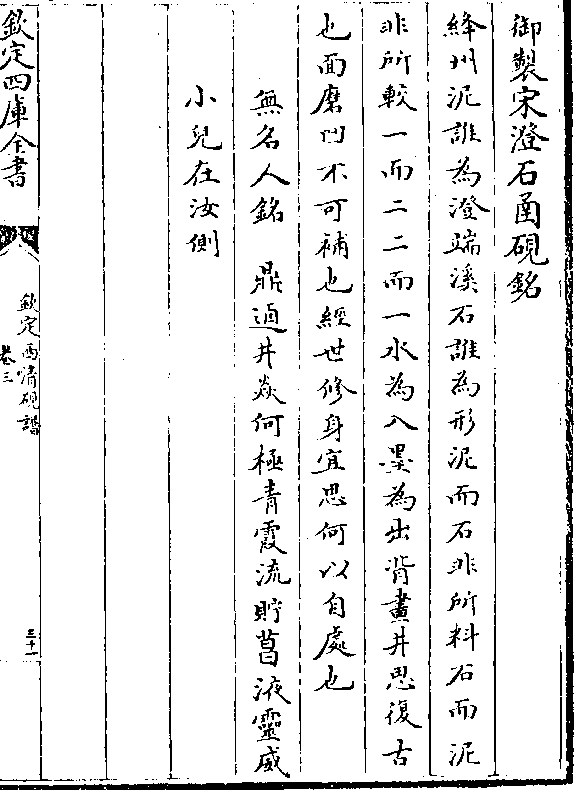 御製宋澄石凾硯銘
絳州泥誰為澄端溪石誰為形泥而石非所料石而泥
非所較一而二二而一水為入墨為出背畫井思復古
也面磨凹不可補也經世修身宜思何以自處也
無名人銘　鼎逈井焱何極青霞流貯菖液靈威
小兒在汝側
欽定四庫全書
欽定西清硯譜
卷三
三十一